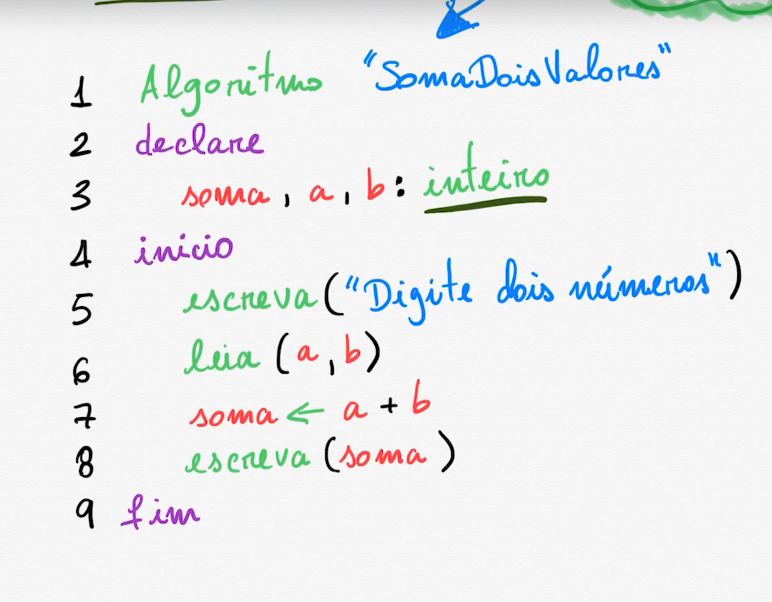 1 Algoritmo "SomaDoisValores"
2 declare
3 soma, a, b: inteiro
4 inicio
5 escreva("Digite dois números")
6 leia (a, b)
7 soma ← a + b
8 escreva (soma)
9 fim